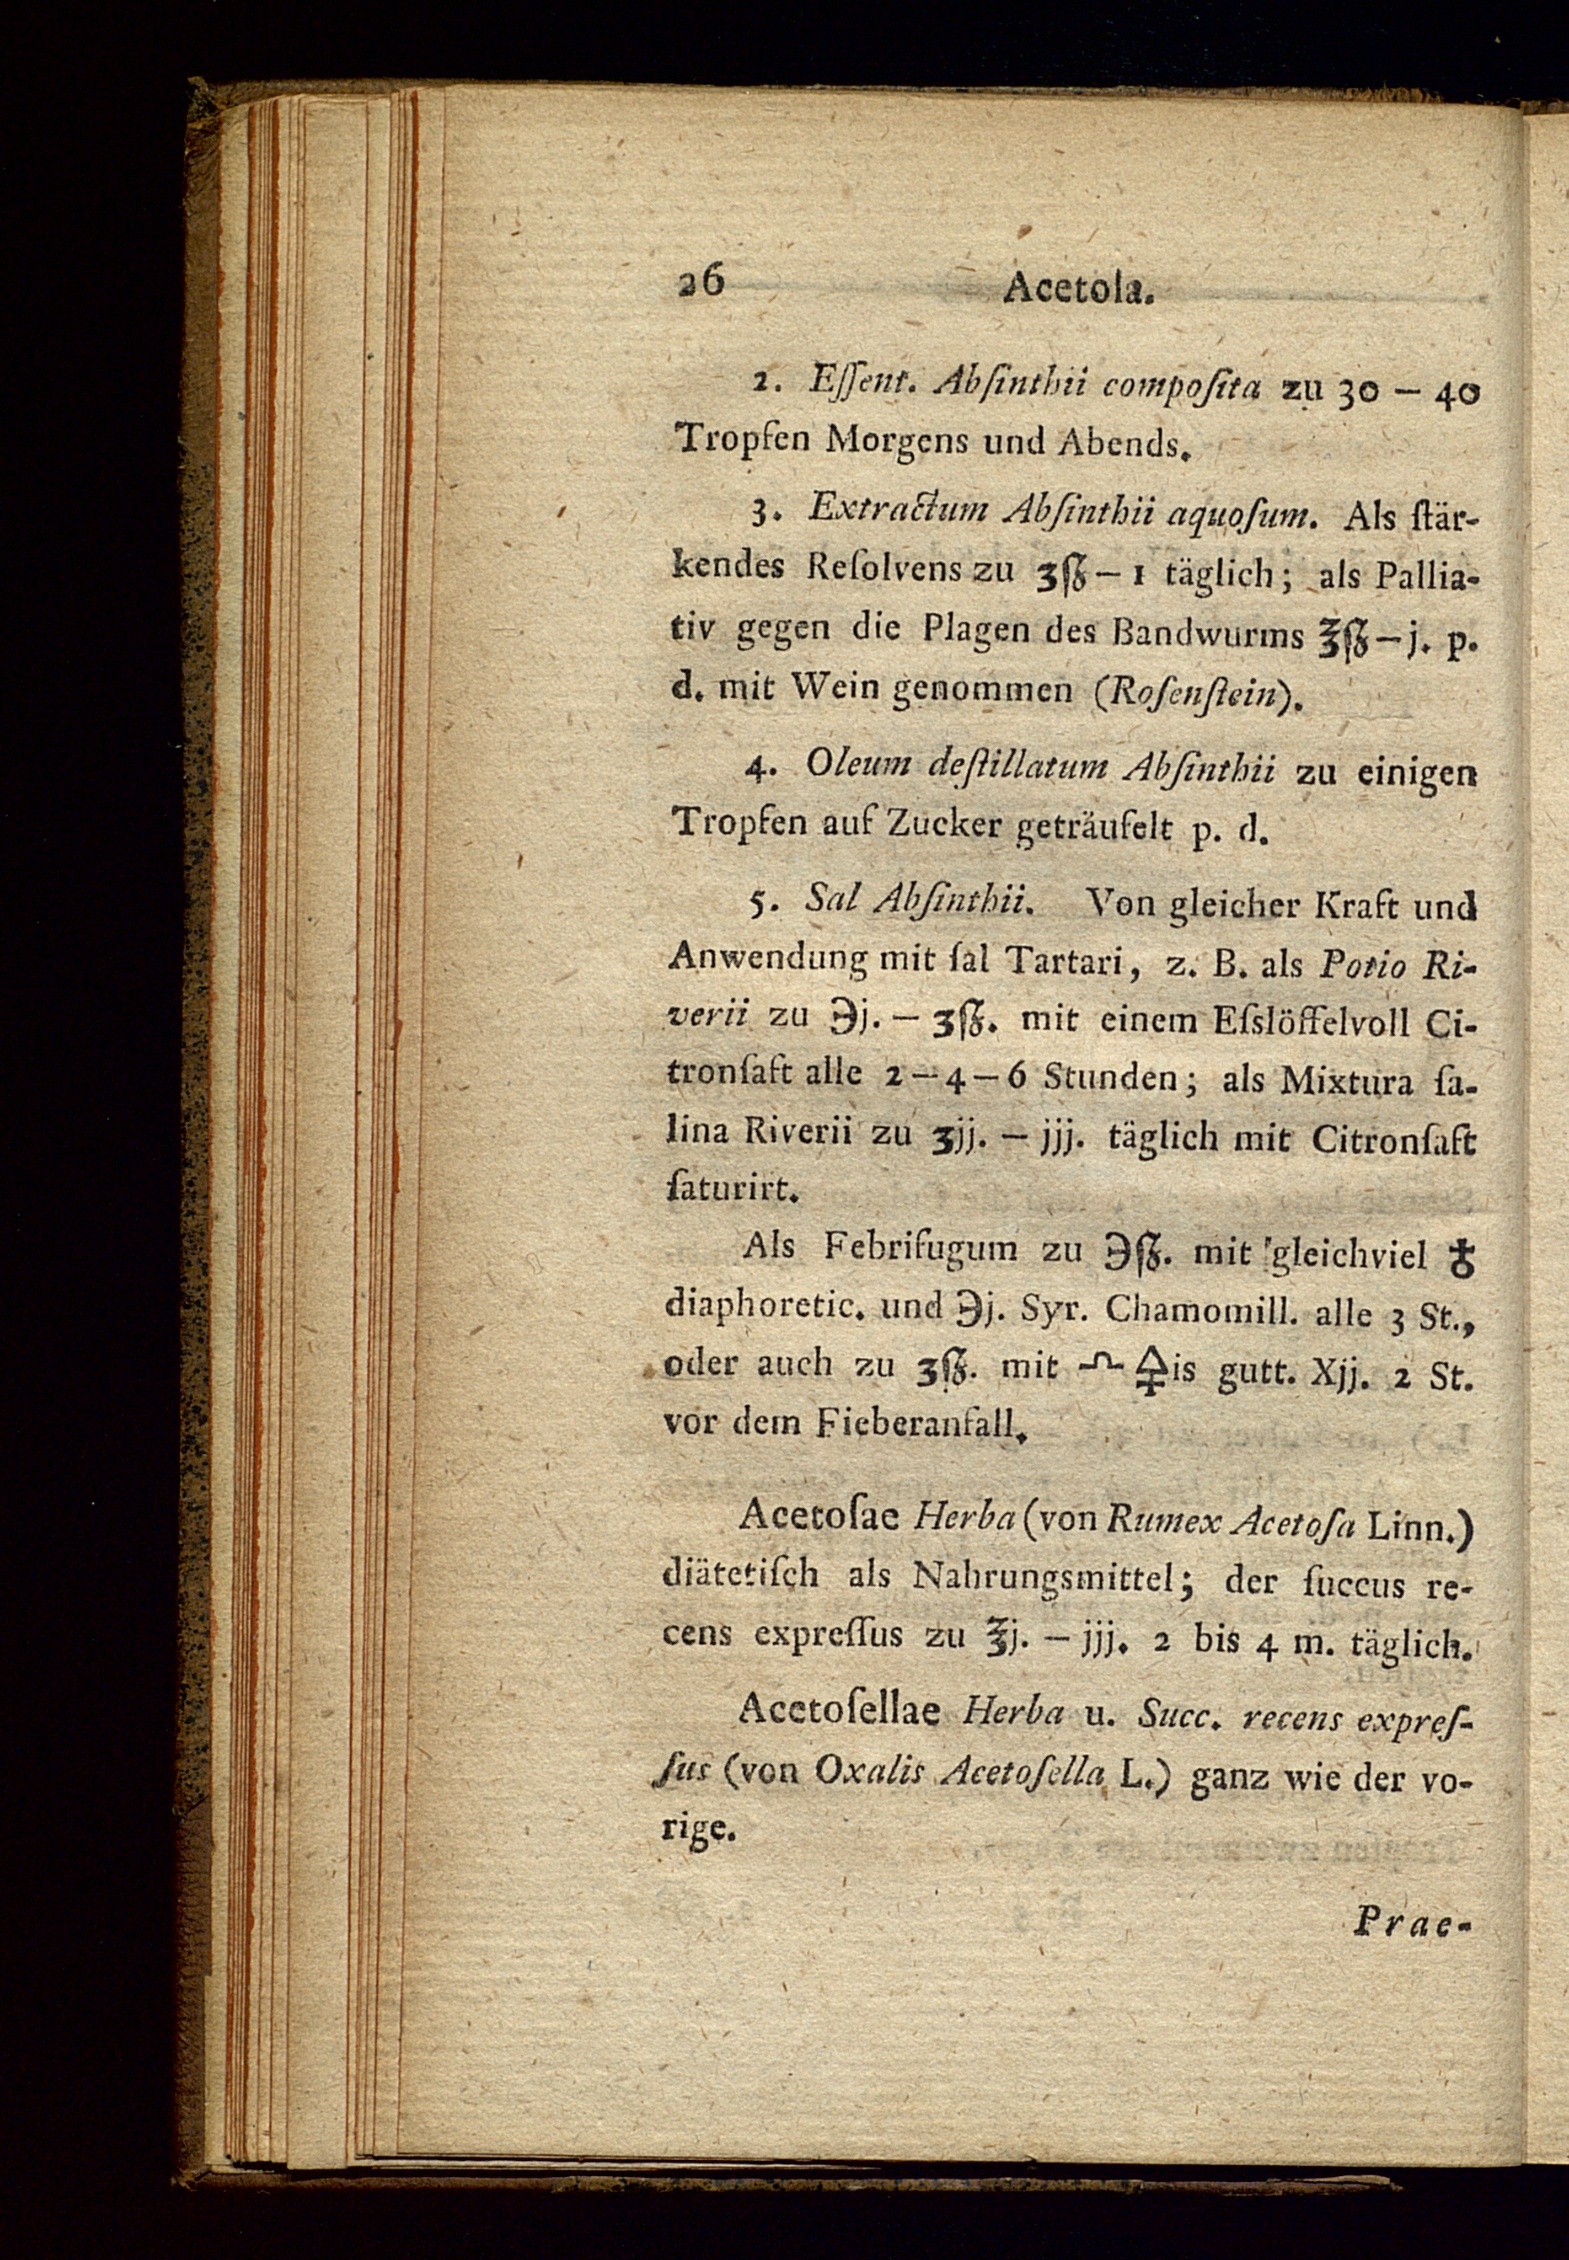 26 Acetoſa.
2. Eſſent. Abſinthii compoſita zu 30 — 40
Tropfen Morgens und Abends.
3. Extractum Abſinthii aquoſum. Als ſtär-
kendes Reſolvens zu ʒß — 1 täglich; als Pallia-
tiv gegen die Plagen des Bandwurms ℥ß — j. p.
d. mit Wein genommen (Roſenſtein).
4. Oleum deſtillatum Abſinthii zu einigen
Tropfen auf Zucker geträufelt p. d.
5. Sal Abſinthii. Von gleicher Kraft und
Anwendung mit ſal Tartari, z. B. als Potio Ri-
verii zu ℈j. — ʒß. mit einem Eſslöffelvoll Ci-
tronſaft alle 2 — 4 — 6 Stunden; als Mixtura ſa-
lina Riverii zu ʒjj. — jjj. täglich mit Citronſaft
ſaturirt.
Als Febrifugum zu ℈ß. mit gleichviel ♁
diaphoretic. und ℈j. Syr. Chamomill. alle 3 St.,
oder auch zu ʒß. mit 🜍is gutt. Xjj. 2 St.
vor dem Fieberanfall.
Acetoſae Herba (von Rumex Acetoſa Linn.)
diätetiſch als Nahrungsmittel; der ſuccus re-
cens expreſſus zu ℥j. — jjj. 2 bis 4 m. täglich.
Acetoſellae Herba u. Succ. recens expreſ-
ſus (von Oxalis Acetoſella L.) ganz wie der vo-
rige.
Prae-